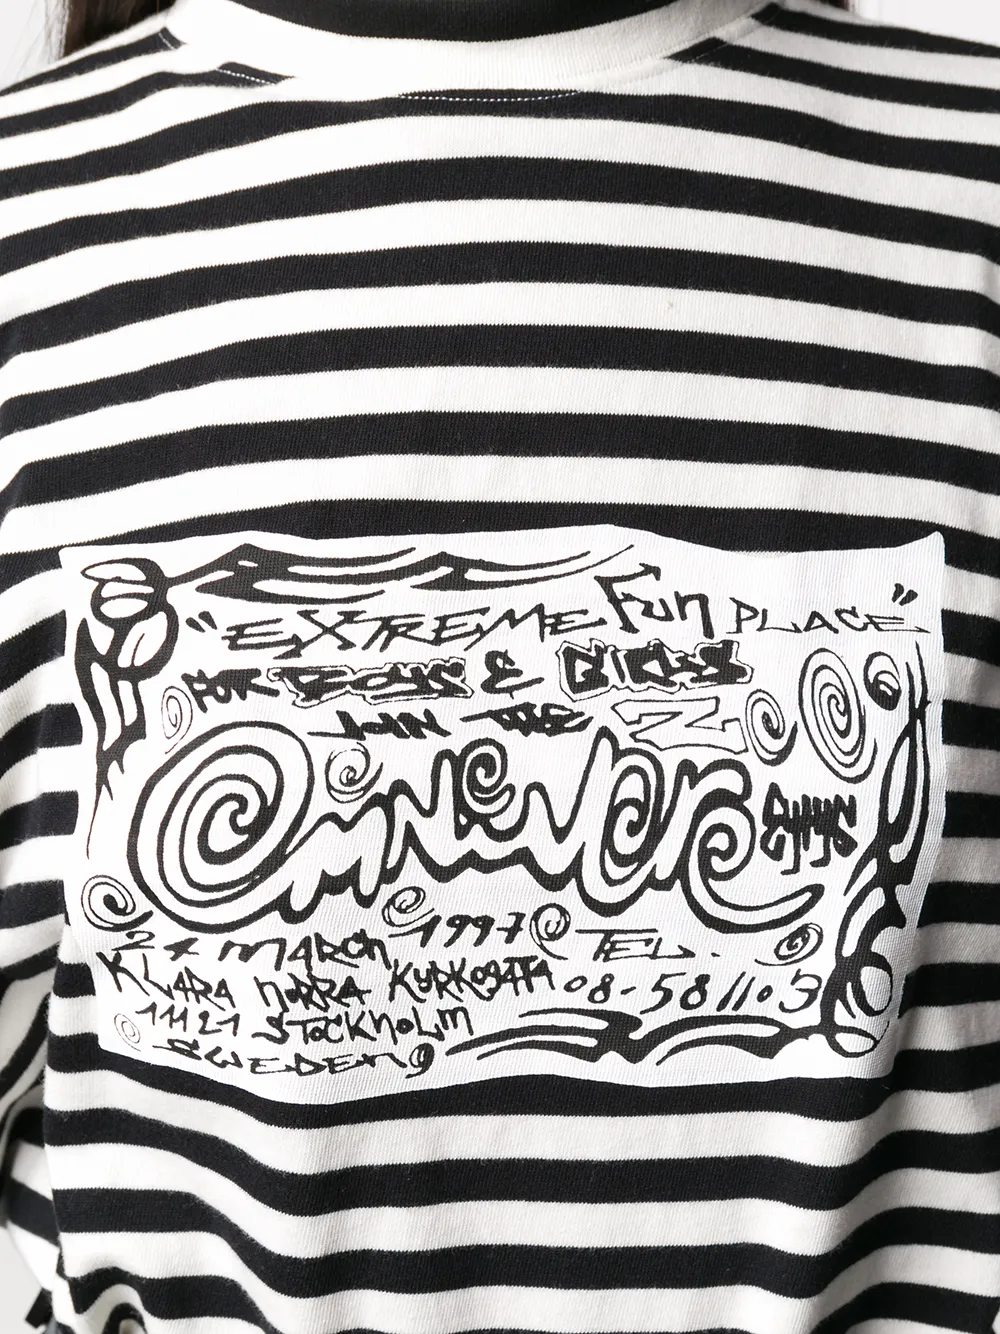 "EXTREME Fun PLACE"
FOR BOYS & GIRLS
JOIN THE Z
OmNeVerS
2 x MARCH 1997 TEL.
KLARA NORRA KYRKOGATA 08-58 11 03
11121 STOCKHOLM
SWEDEN